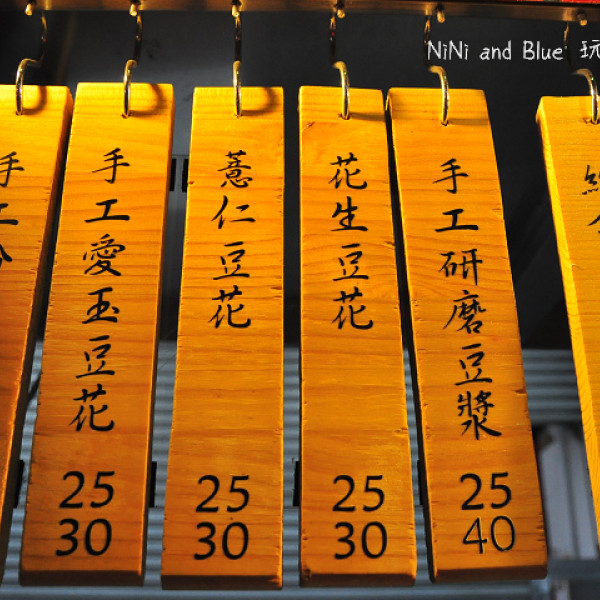 NiNi and Blue 玩
手工
手工愛玉豆花
25
30
薏仁豆花
25
30
花生豆花
25
30
手工研磨豆漿
25
40